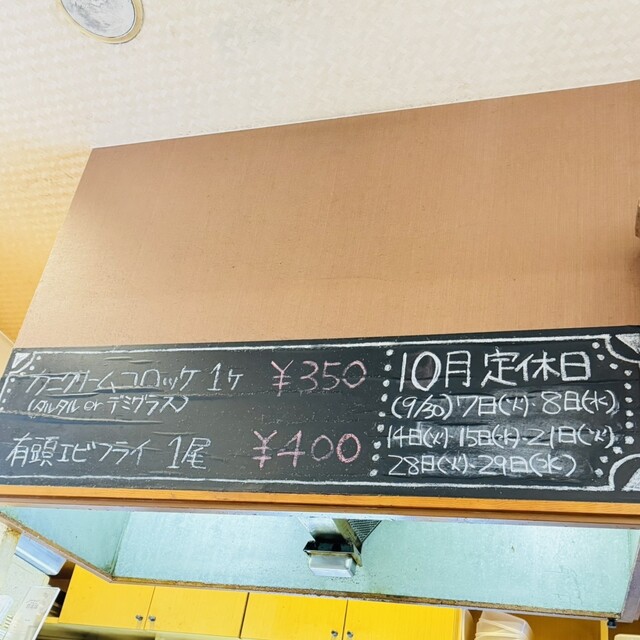 カニクリームコロッケ 1ヶ ¥350
(タルタル or デミグラス)
有頭エビフライ 1尾 ¥400
10月定休日
(9/30) 7日(火)・8日(水)
14日(火)・15日(水)・21日(火)
28日(火)・29日(水)